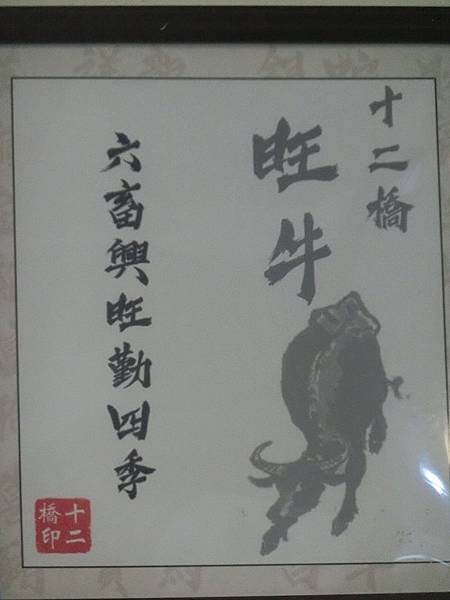 十二橋
旺牛
六畜興旺勤四季
十二
橋印